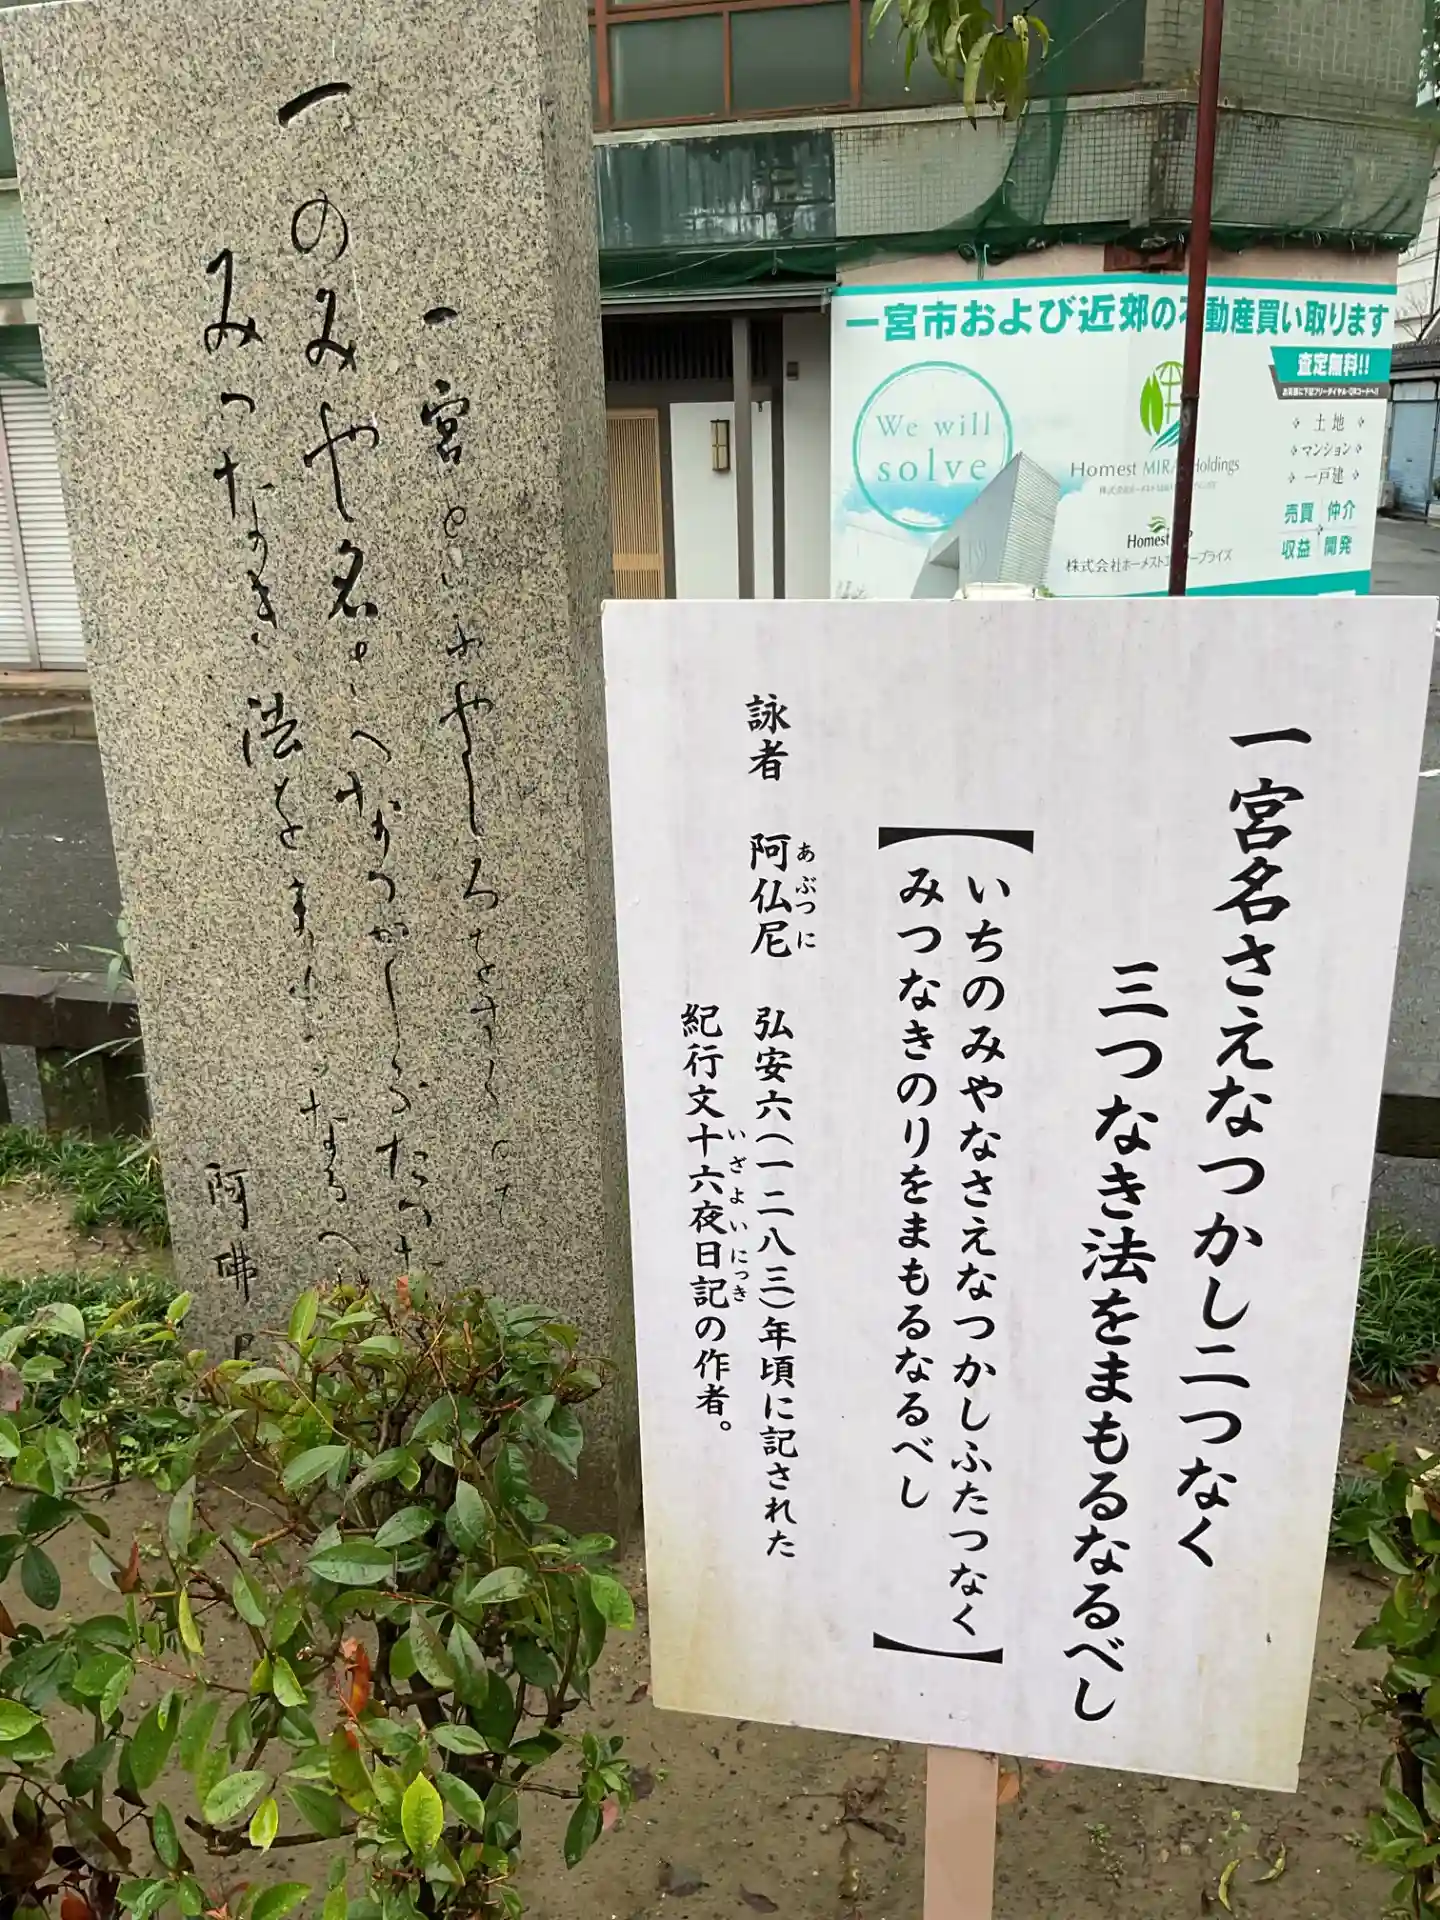 一宮名さえなつかし二つなく
三つなき法をまもるなるべし
【いちのみやなさえなつかしふたつなく
みつなきのりをまもるなるべし】
詠者 阿仏尼 弘安六(一二八三)年頃に記された
あぶつに
紀行文十六夜日記の作者。
いざよいにっき
一宮といふやしろを
一のみや名さへなつかしふたつ
みつなき法をまもるなるへ
阿佛
一宮市および近郊の不動産買い取ります
査定無料!!
We will
solve
土地
マンション
一戸建
売買 仲介
収益 開発
Homest MIRAI Holdings
Homest
株式会社ホーメストエンタープライズ